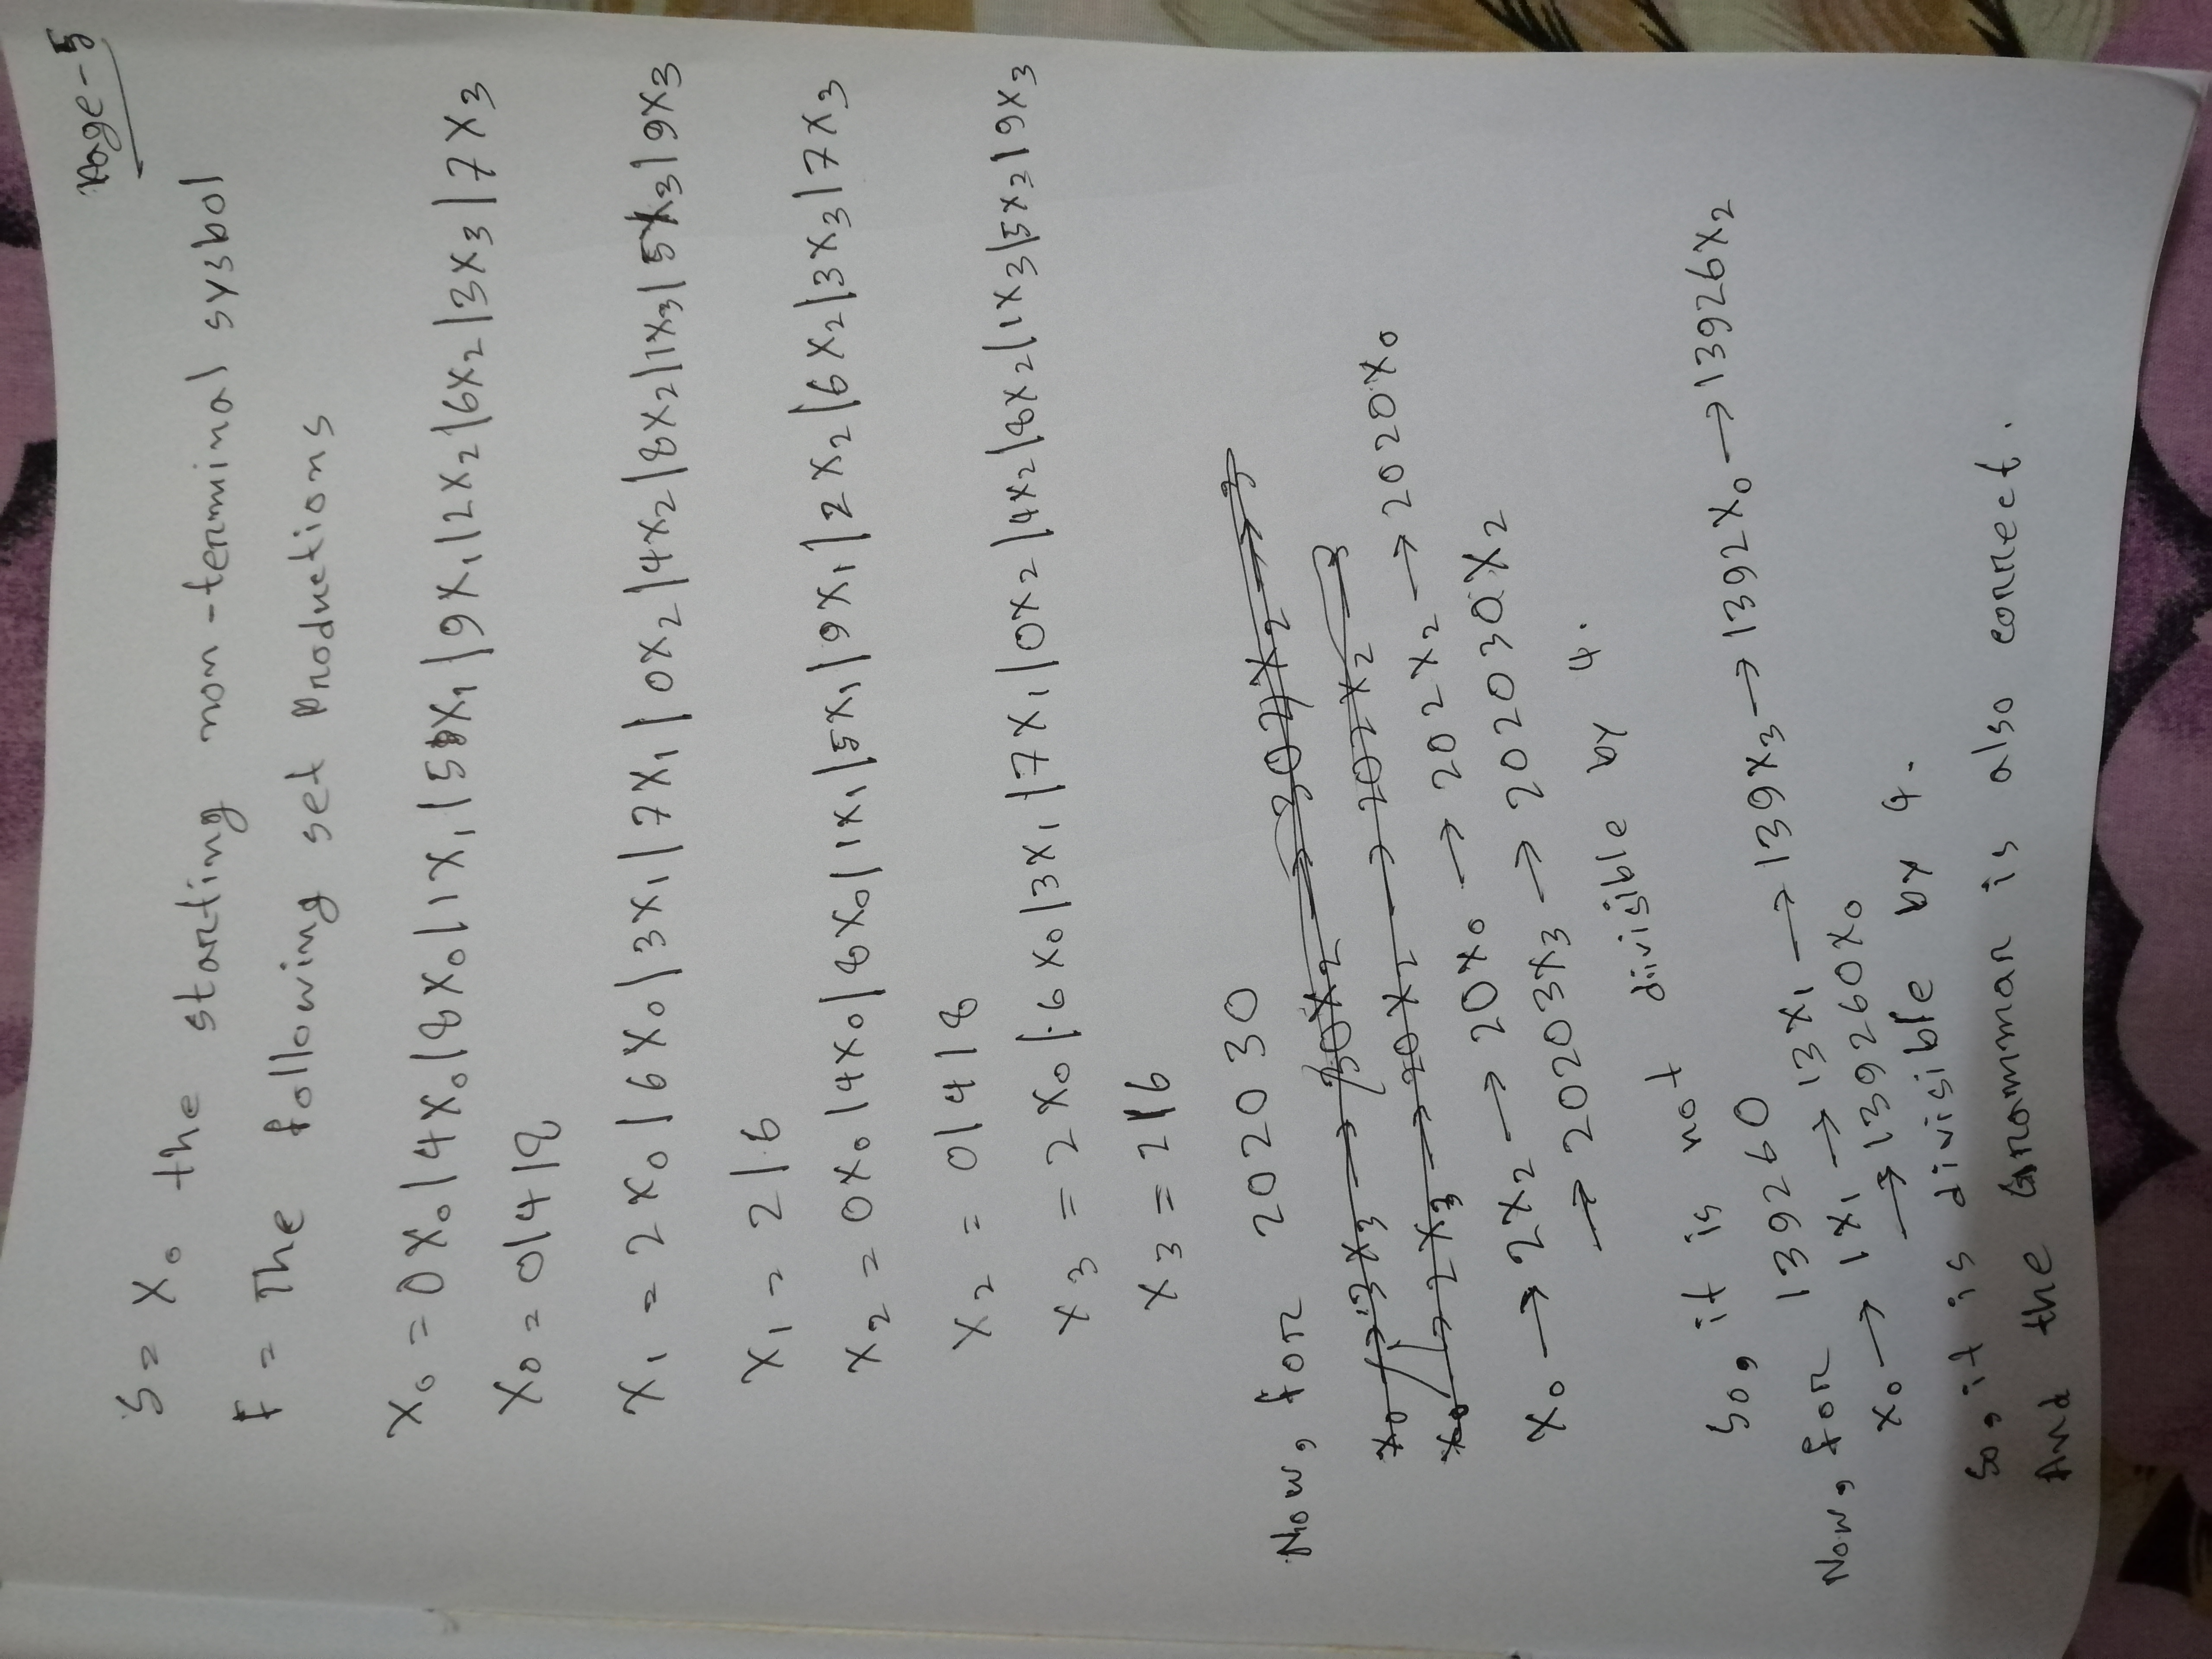 Page-5
S = X₀ the starting non-terminal sysbol
F = The following set Productions
X₀ = 0X₀|4X₀|8X₀|1X₁|5X₁|9X₁|2X₂|6X₂|3X₃|7X₃
X₀ = 0|4|8
X₁ = 2X₀|6X₀|3X₁|7X₁|0X₂|4X₂|8X₂|1X₃|5X₃|9X₃
X₁ = 2|6
X₂ = 0X₀|4X₀|8X₀|1X₁|5X₁|9X₁|2X₂|6X₂|3X₃|7X₃
X₂ = 0|4|8
X₃ = 2X₀|6X₀|3X₁|7X₁|0X₂|4X₂|8X₂|1X₃|5X₃|9X₃
X₃ = 2|6
Now, for 202030
X₀ → 2X₂ → 20X₀ → 202X₂ → 2020X₀
→ 20203X₃ → 202030X₂
So, it is not divisible by 4.
Now, for 139260
X₀ → 1X₁ → 13X₁ → 139X₃ → 1392X₀ → 13926X₂
→ 139260X₀
So, it is divisible by 4.
And the Grammar is also correct.